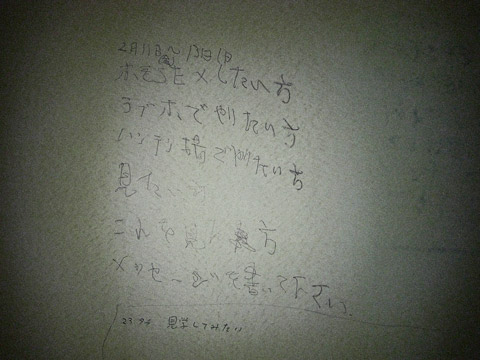 2月11日(金)〜13日(日)
SEXしたい方
ラブホでやりたい方
ハッテン場でやりたい方
見たい
これを見た方
メッセージを書いて下さい
23 74 見学してみたい